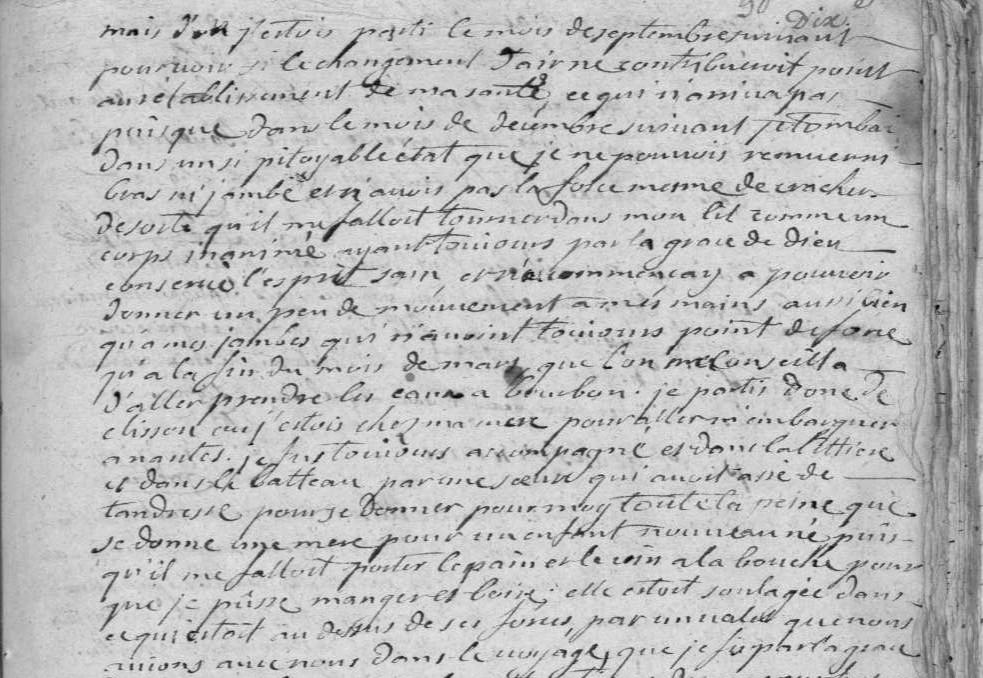 Dix
mais d'où j'estois parti le mois de septembre suivant
pour voir si le changement d'air ne contribueroit point
au retablissement de ma santé, ce qui n'arriva pas
puisque dans le mois de decembre suivant je tombai
dans un si pitoyable état que je ne pouvois remuer ni
bras ni jambe et n'avois pas la force mesme de cracher
desorte qu'il me falloit tourner dans mon lit comme un
corps inanimé ayant toujours par la grace de dieu
conservé l'esprit sain et ne commençay a pouvoir
donner un peu de mouvement a mes mains aussi bien
qu'a mes jambes qui n'avoint toujours point de force
qu'a la fin du mois de mars que l'on me conseilla
d'aller prendre les eaux a bourbon. je partis donc de
clisson ou j'estois chez ma mere pour aller m'embarquer
a nantes. je fus toujours accompagné et dans la littiere
et dans le batteau par une sœur qui avoit assé de
tandresse pour se donner pour moy toute la peine que
se donne une mere pour un enfant nouveau né puis-
qu'il me falloit porter le pain et le vin a la bouche pour
que je pûsse manger et boire; elle estoit soulagée dans
ce qui estoit au dessus de ses forces, par un valet que nous
avions avec nous dans le voyage, que je fis par la grace